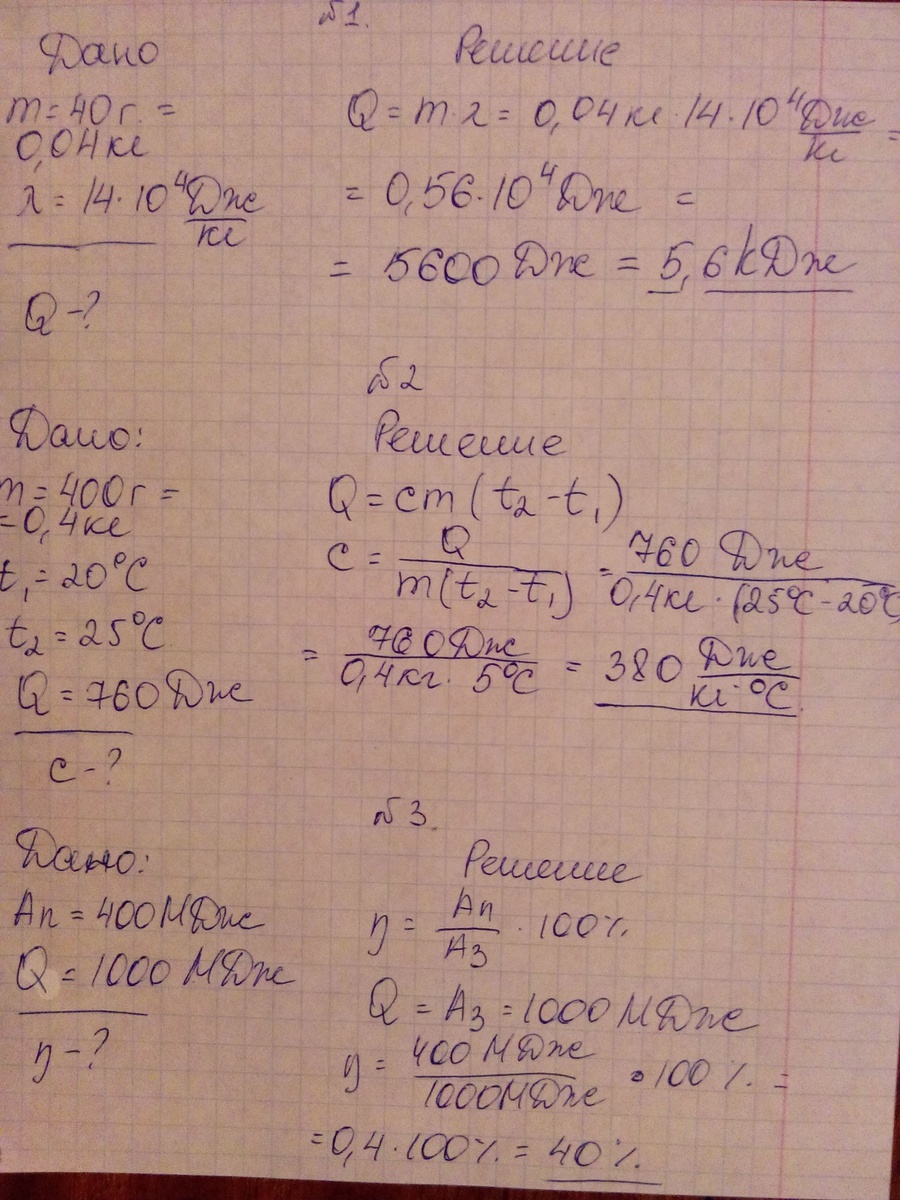 №1.
Дано
m = 40 г. =
0,04 кг
λ = 14·10⁴ Дж/кг
Q - ?
Решение
Q = m·λ = 0,04 кг · 14 · 10⁴ Дж/кг =
= 0,56·10⁴ Дж =
= 5600 Дж = 5,6 кДж
№2
Дано:
m = 400 г =
= 0,4 кг
t₁ = 20°C
t₂ = 25°C
Q = 760 Дж
c - ?
Решение
Q = cm(t₂ - t₁)
c = Q/m(t₂ - t₁) = 760 Дж/0,4 кг · (25°C - 20°C
= 760 Дж/0,4 кг · 5°C = 380 Дж/кг·°C
№3.
Дано:
Ап = 400 МДж
Q = 1000 МДж
η - ?
Решение
η = Ап/Аз · 100%
Q = Аз = 1000 МДж
η = 400 МДж/1000 МДж · 100% =
= 0,4 · 100% = 40%